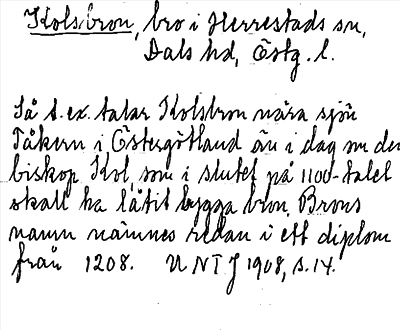 Kolsbron, bro i Herrestads sn,
Dals hd, Östg. l.
Så t. ex. talar Kolsbron nära sjön
Tåkern i Östergötland än i dag om den
biskop Kol, som i slutet på 1100-talet
skall ha låtit bygga bron. Brons
namn nämnes redan i ett diplom
från 1208. UNTJ 1908, s. 14.